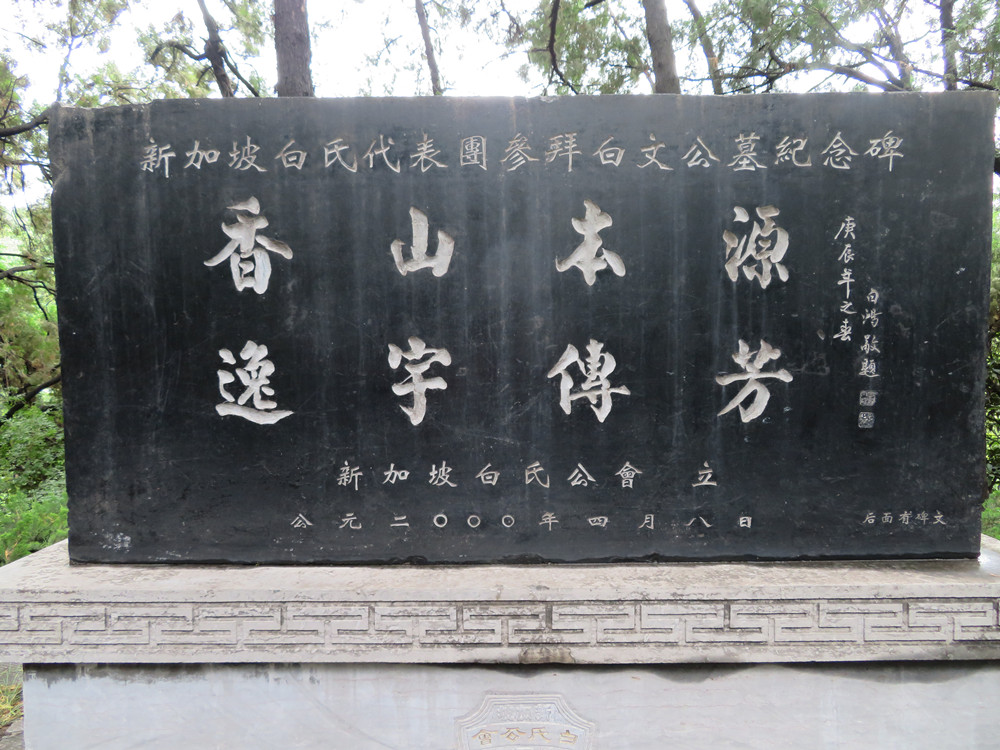 新加坡白氏代表團參拜白文公墓紀念碑
香山本源
逸宇傳芳
庚辰年之春
白鴻敬題
新加坡白氏公會 立
公元二〇〇〇年四月八日
后面有碑文
白氏公會